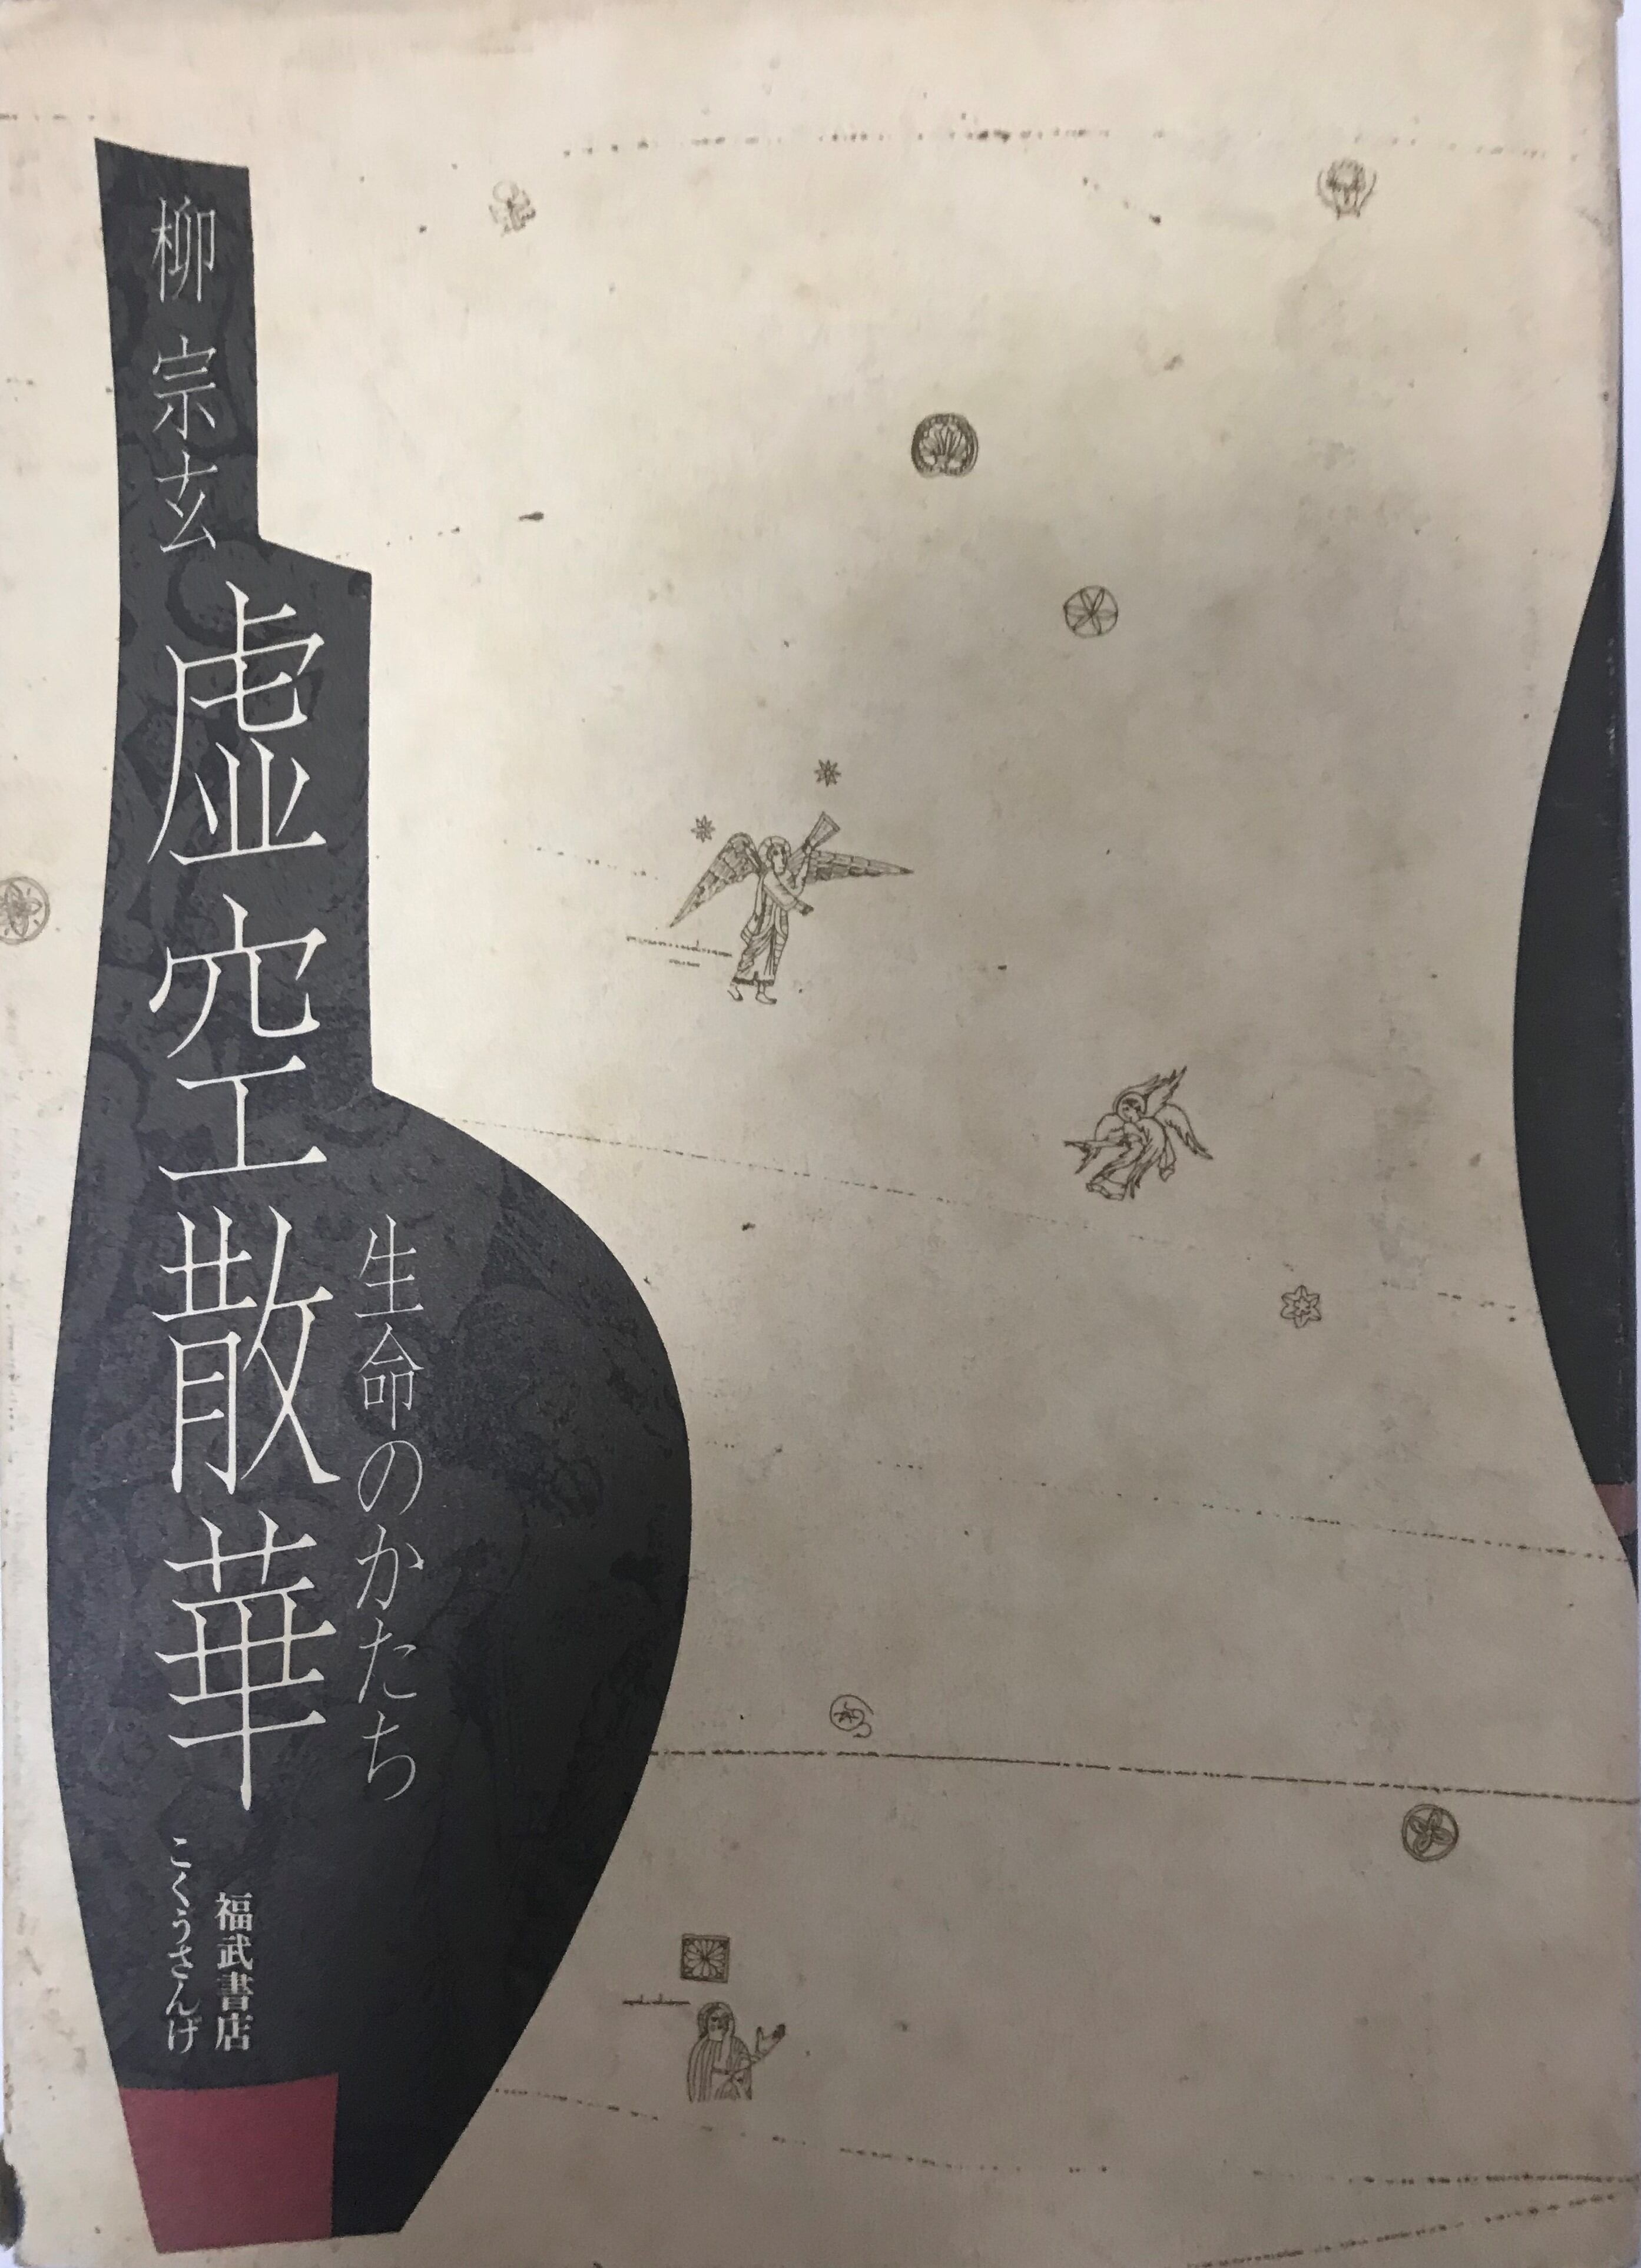 柳宗玄
虚空散華
生命のかたち
こくうさんげ
福武書店